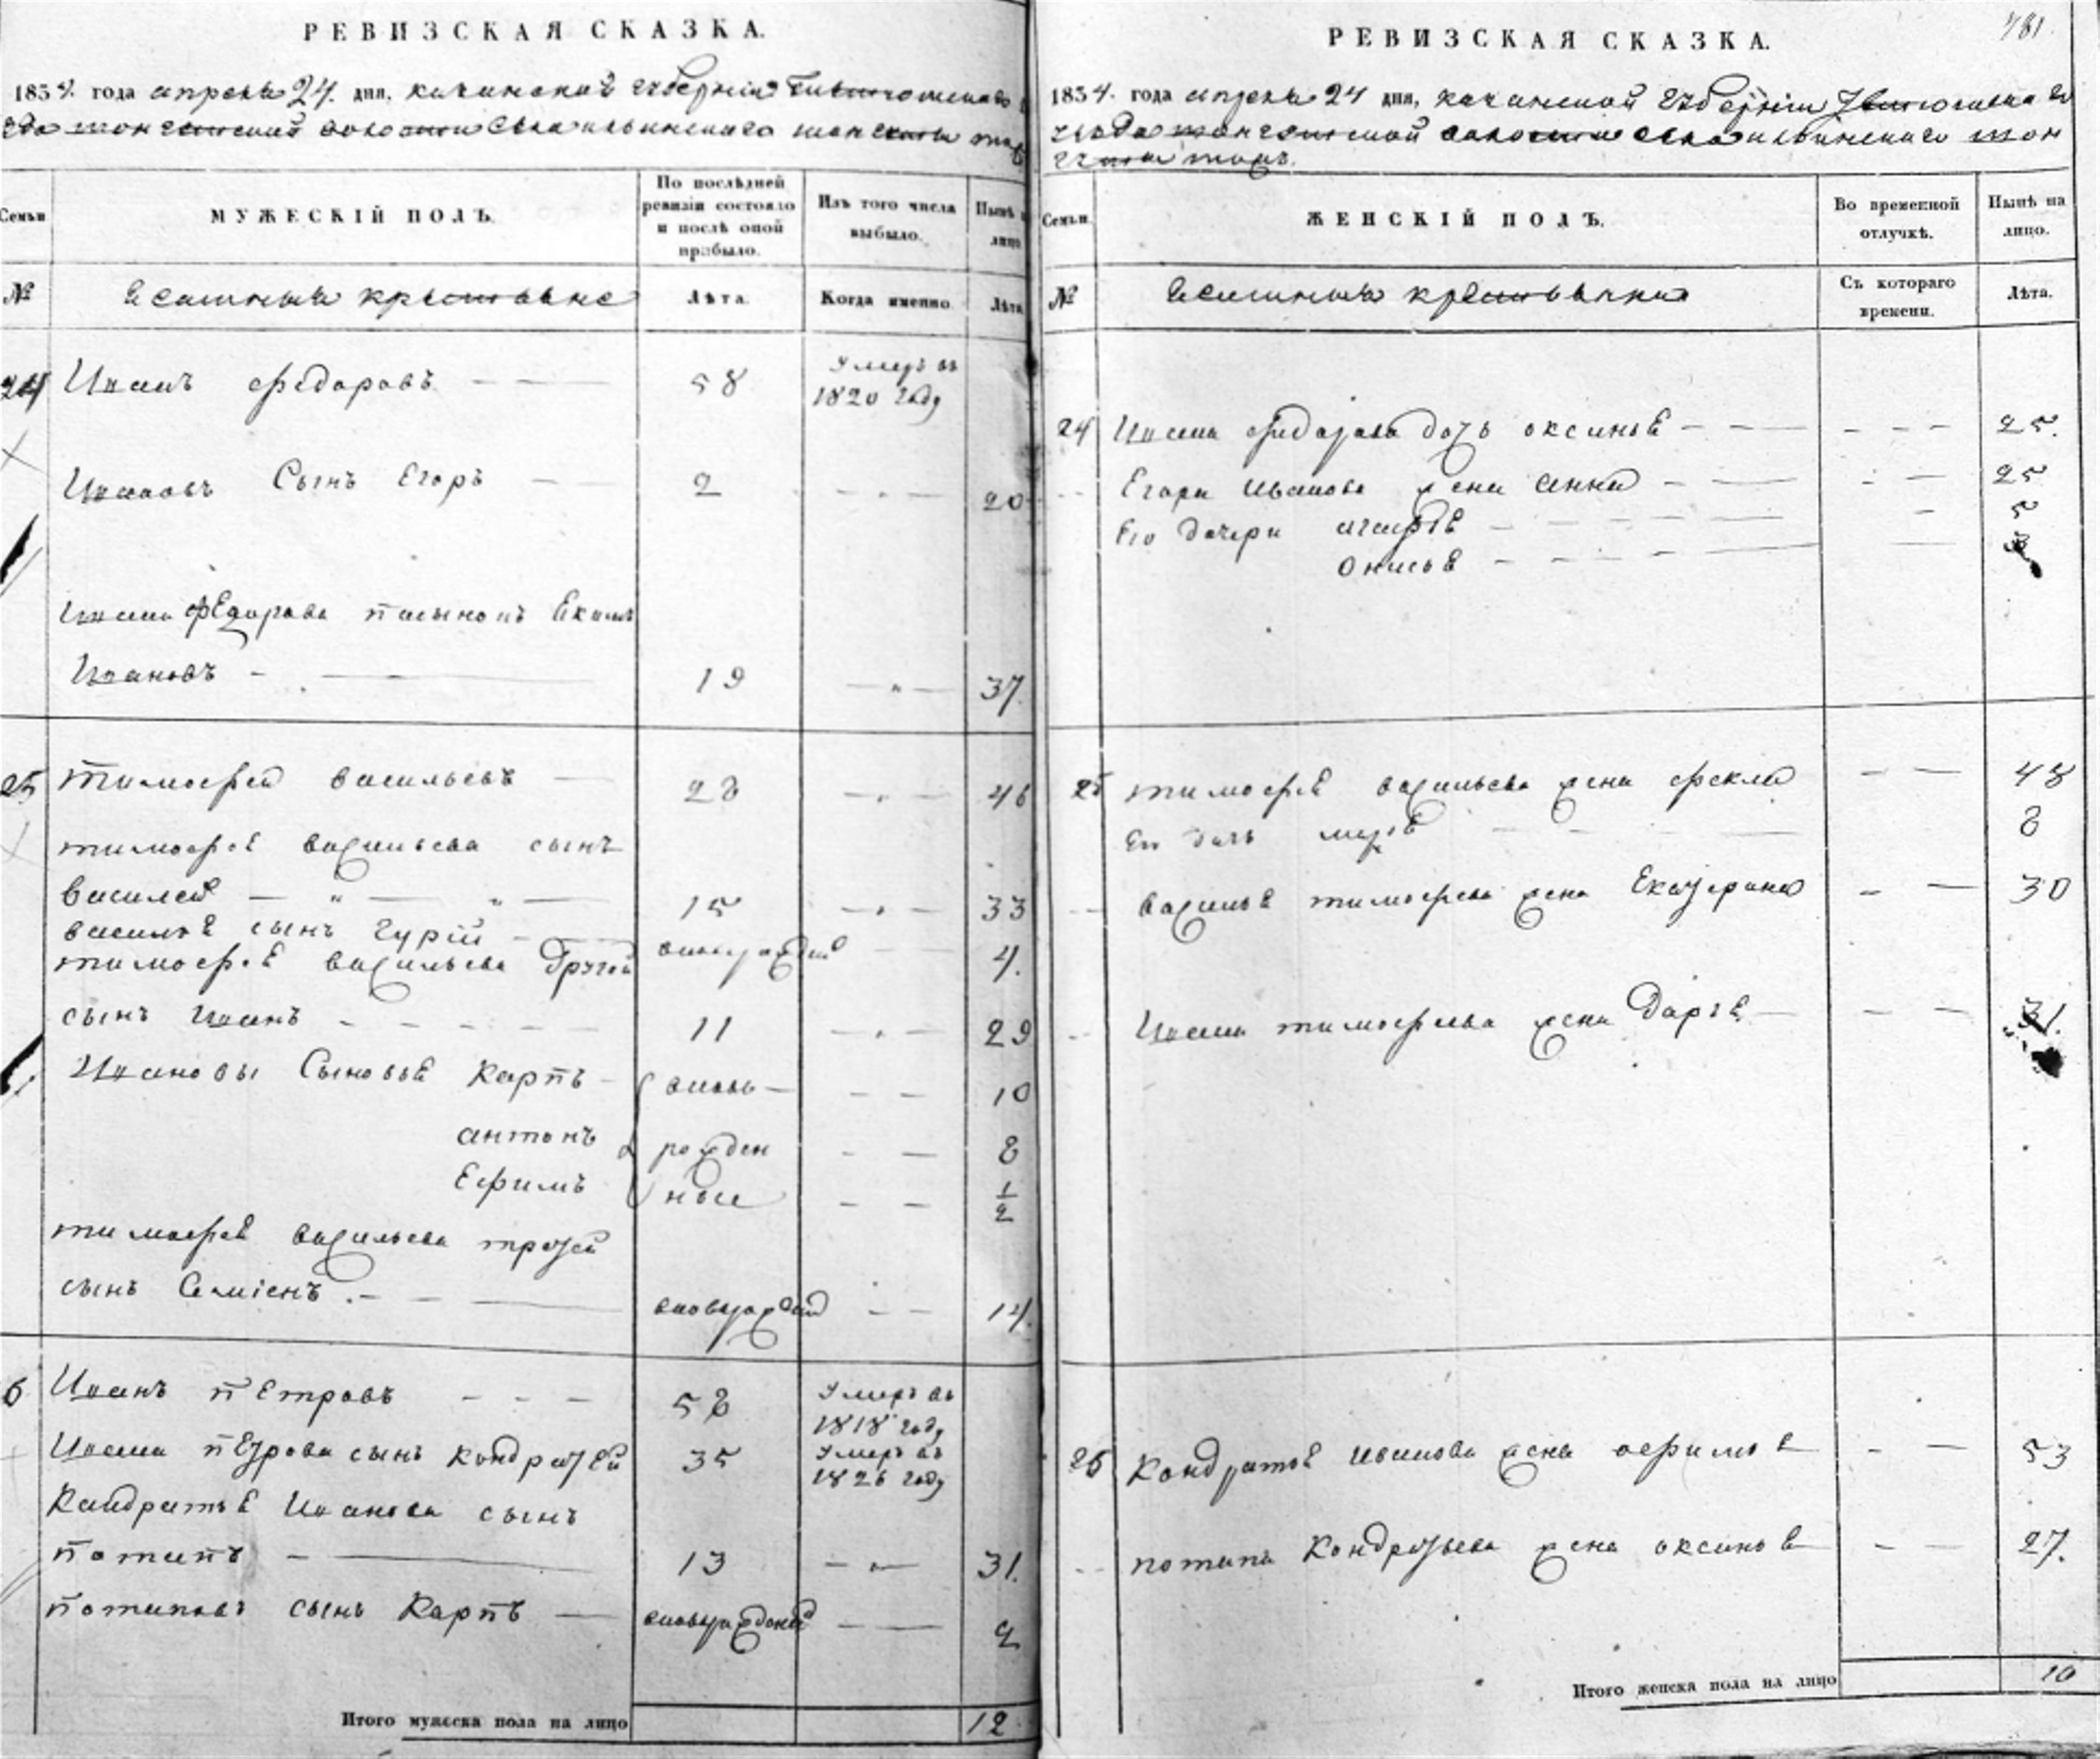 РЕВИЗСКАЯ СКАЗКА.
1834. года апреля 24. дня, казанской губернiи
волости села ильинскаго
Семьи
МУЖЕСКIЙ ПОЛЪ.
По послѣдней ревизiи состояло и послѣ оной прибыло.
Изъ того числа выбыло.
Нынѣ на лицо
№
Ясашныя крестьяне
Лѣта.
Когда именно.
Лѣта
24 Иванъ Федоровъ 58 Умеръ въ 1820 году
Ивановъ Сынъ Егоръ 2 20
Ивана Федорова пасынокъ Екимъ
Ивановъ 19 37.
25 Тимофей васильевъ 28 46
тимофея васильева сынъ
василей 15 33
василья сынъ гурiй вноврожденъ 4.
тимофея васильева другой
сынъ Иванъ 11 29
Ивановы Сыновья Карпъ вновь 10
антонъ рожден 8
Ефимъ ные 1/2
тимофея васильева третей
сынъ Семiенъ вноврожден 14.
6 Иванъ петровъ 52 Умеръ въ 1818 году
Ивана петрова сынъ Кондратей 35 Умеръ въ 1826 году
Кандратья Иванова сынъ
потапъ 13 31.
потаповъ сынъ Карпъ вноврожденой 2
Итого мужеска пола на лицо 12
481.
РЕВИЗСКАЯ СКАЗКА.
1834. года апреля 24 дня, казанской губернiи
волости села ильинскаго
Семьи.
ЖЕНСКIЙ ПОЛЪ.
Во временной отлучкѣ.
Нынѣ на лицо.
№
Ясашныя крестьянки
Съ котораго времени.
Лѣта.
24 Ивана федорова дочь оксинья 25.
Егора Иванова жена анна 25
Его дочери агафья 5
онисья
25 тимофея васильева жена фекла 48
Ево дочь марья 8
василья тимофеева жена Екатерина 30
Ивана тимофеева жена Дарья 31.
26 Кондратья иванова жена афимья 53
потапа Кондратьева жена оксинья 27.
Итого женска пола на лицо 10